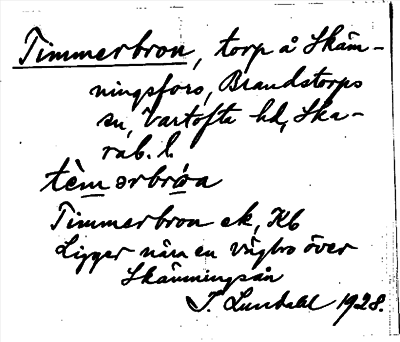 Timmerbron, torp å Skäm-
ningsfors, Brandstorps
sn, Vartofta hd, Ska-
rab. l.
tèm ərbrωa
Timmerbron ek, Kb
Ligger nära en vägbro över
Skämningsån
J. Lundahl 1928.